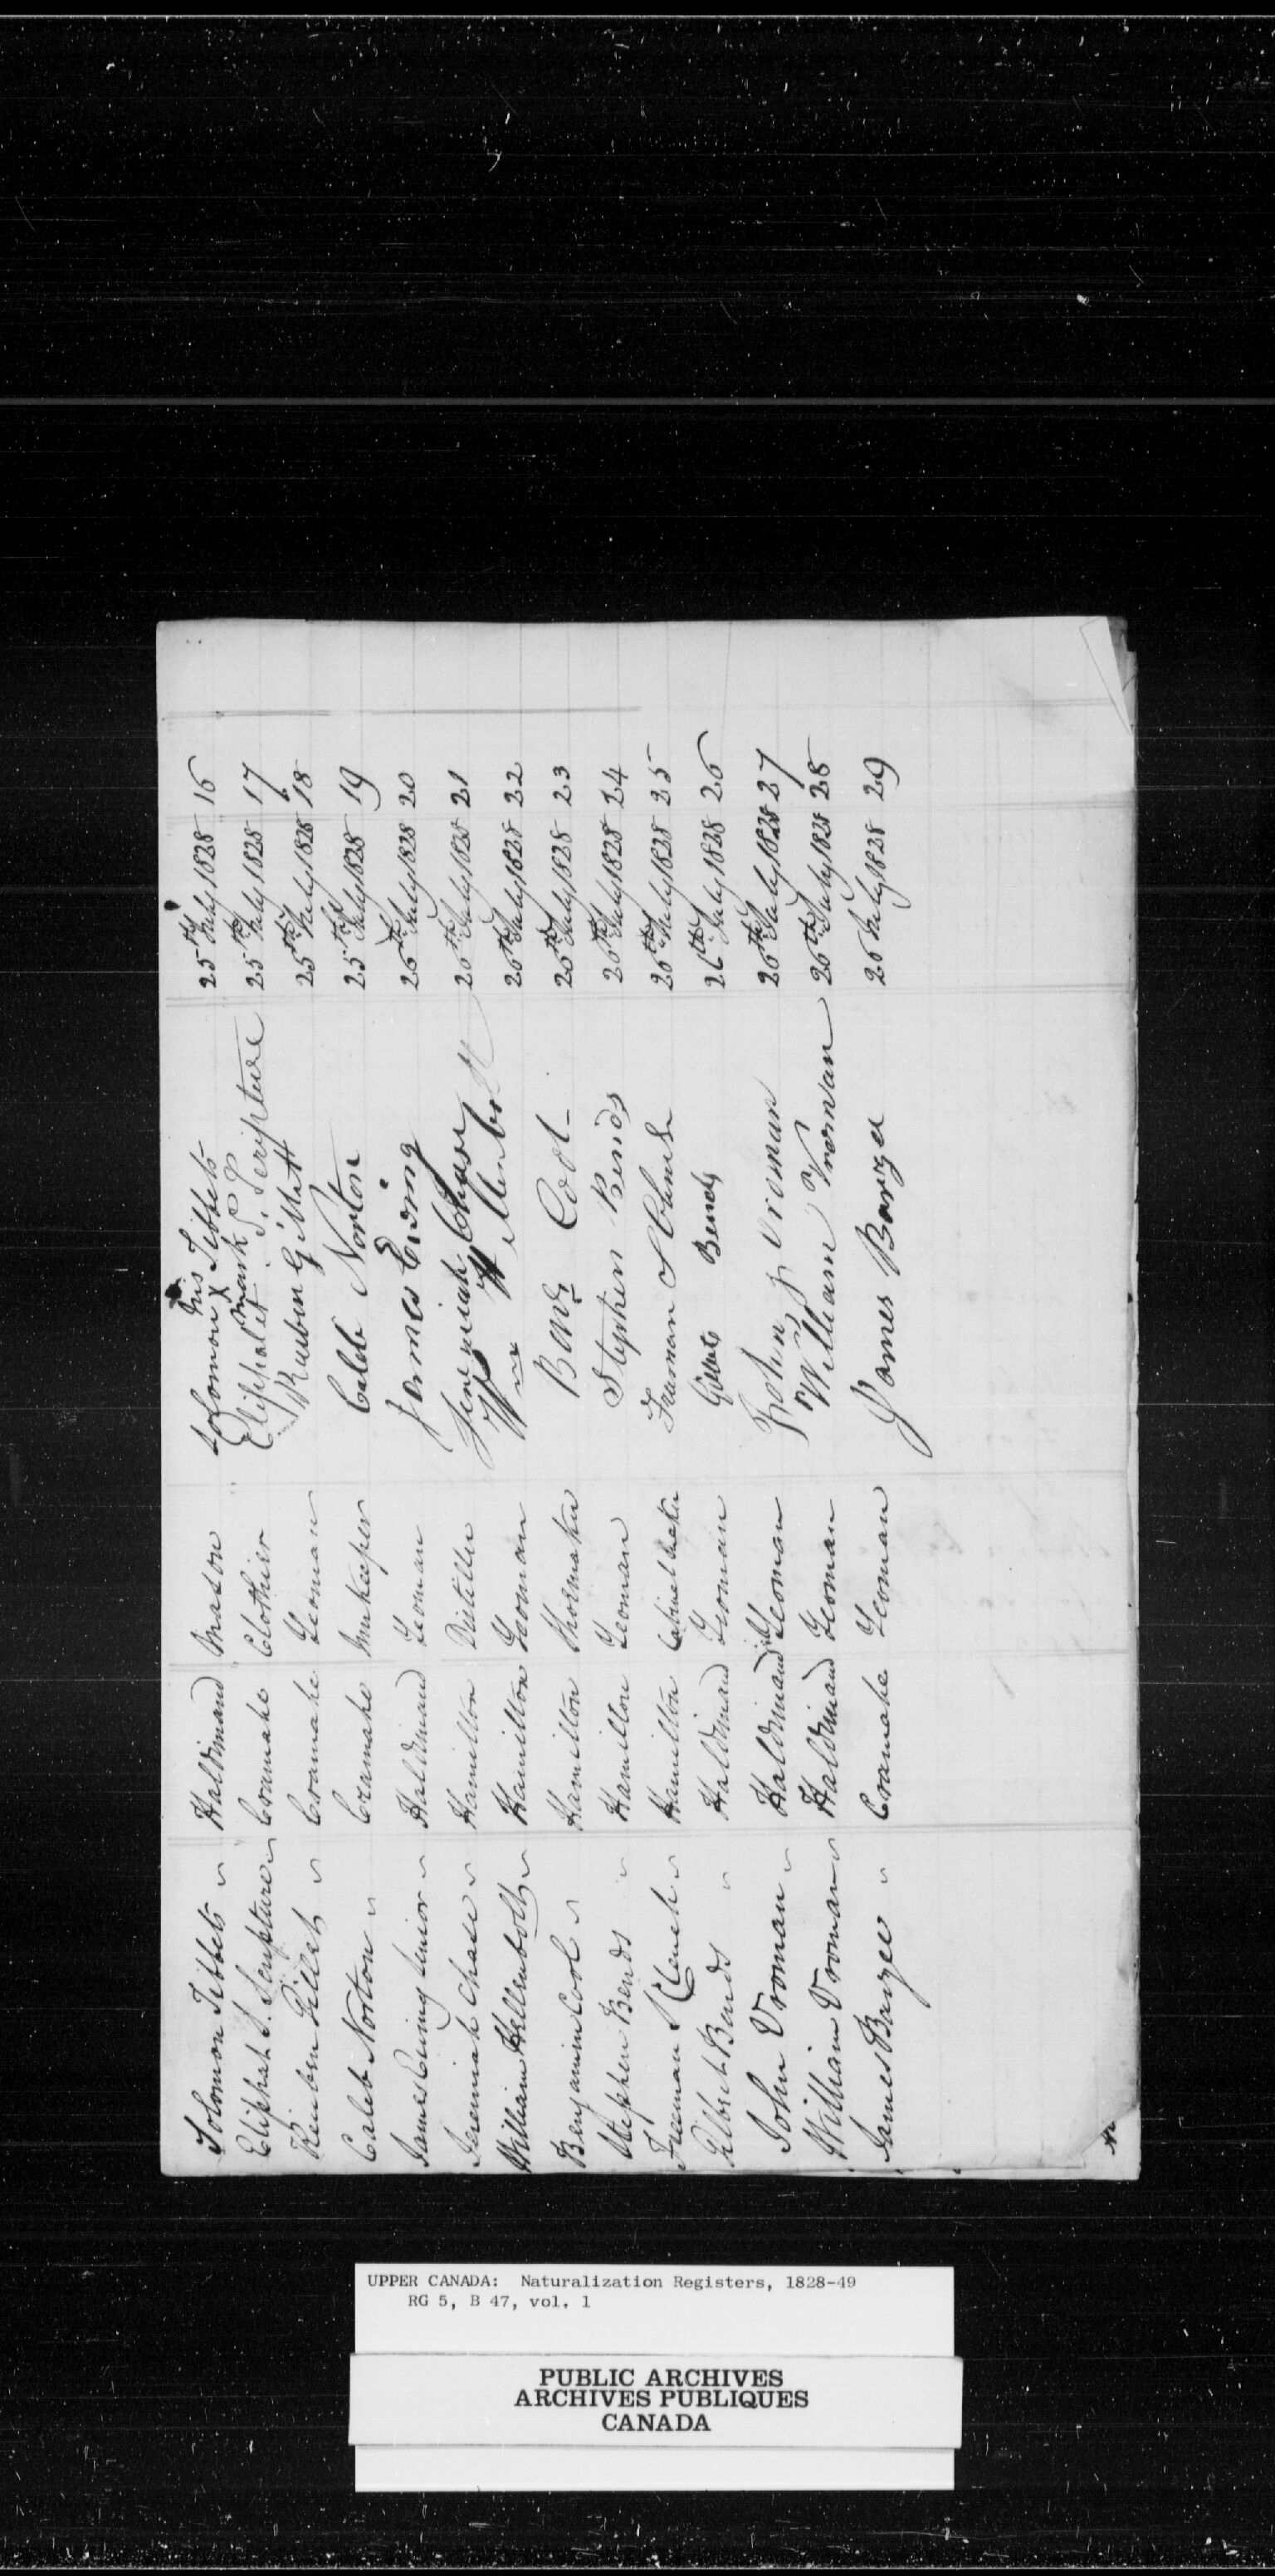 Solomon Tibbets Haldimand Mason Solomon his X mark Tibbets 25th July 1828 16
Eliphat S. Scripture Cramahe Clothier Eliphalet S. Scripture 25th July 1828 17
Reuben Gillet Cramahe Yeoman Reuben Gillett 25th July 1828 18
Caleb Norton Cramahe Innkeeper Caleb Norton 25th July 1828 19
James Ewing Senior Haldimand Yeoman James Ewing 26th July 1828 20
Jeremiah Chase Hamilton Distiller Jeremiah Chase 26th July 1828 21
William Hellenbolt Hamilton Yeoman Wm 26th July 1828 22
Benjamin Cool Hamilton Shoemaker Benj Cool 26th July 1828 23
Stephen Bends Hamilton Yeoman Stephen Bends 26th July 1828 24
Freeman S Clench Hamilton Cabinet Maker Freeman S Clench 26th July 1828 25
Gilbert Bends Haldimand Yeoman Bends 26th July 1828 26
John Vroman Haldimand Yeoman John J Vroman 26th July 1828 27
William Vroman Haldimand Yeoman William Vroman 26th July 1828 28
James Barzee Cramahe Yeoman James Barzee 26 July 1828 29
UPPER CANADA: Naturalization Registers, 1828-49
RG 5, B 47, vol. 1
PUBLIC ARCHIVES
ARCHIVES PUBLIQUES
CANADA